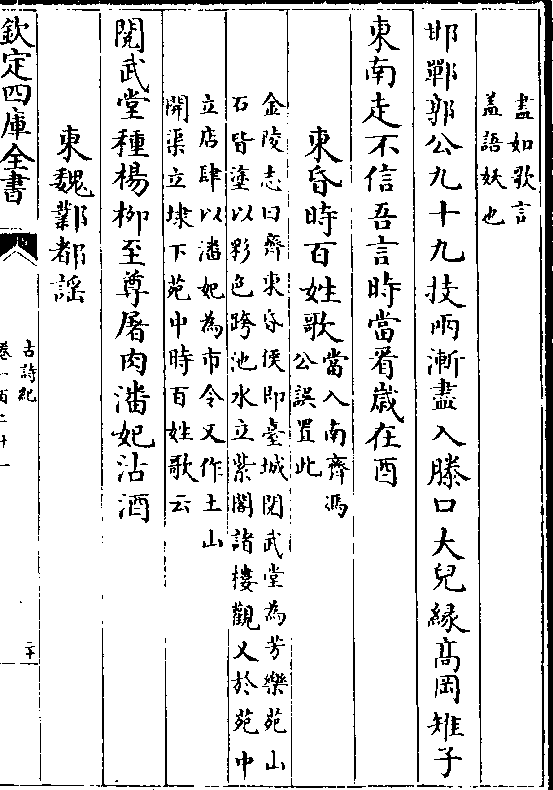 盡如歌言
蓋語妖也
邯鄲郭公九十九技兩漸盡入滕口大兒緣高岡雉子
東南走不信吾言時當看歳在酉
東昏時百姓歌
當入南齊馮
公誤置此
金陵志曰齊東昏侯即臺城閱武堂為芳樂苑山
石皆塗以彩色跨池水立紫閣諸樓觀又於苑中
立店肆以潘妃為市令又作土山
開渠立埭下苑中時百姓歌云
閱武堂種楊柳至尊屠肉潘妃沽酒
東魏鄴都謡
欽定四庫全書
古詩紀
卷一百二十一
二十